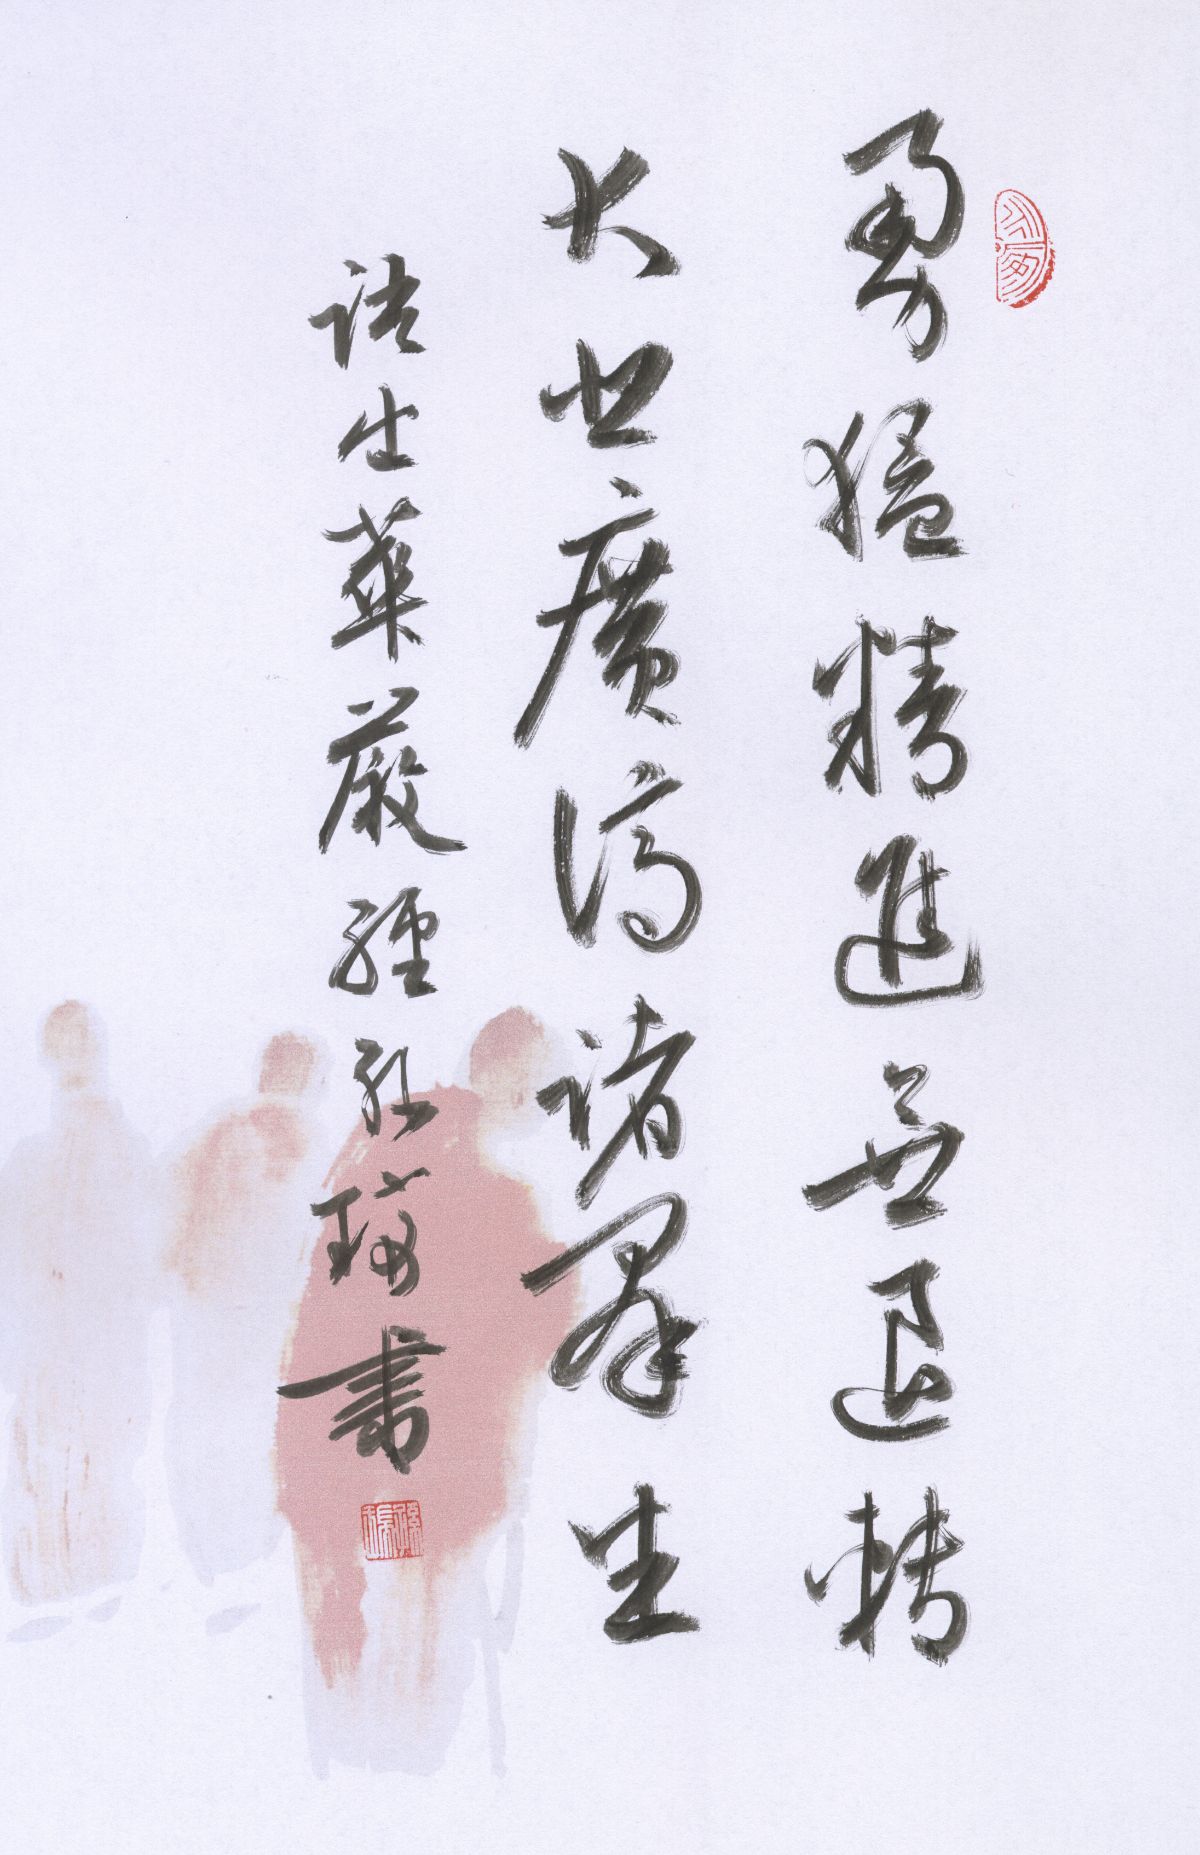 勇猛精進無退轉
大世廣濟諸群生
語出華嚴經書